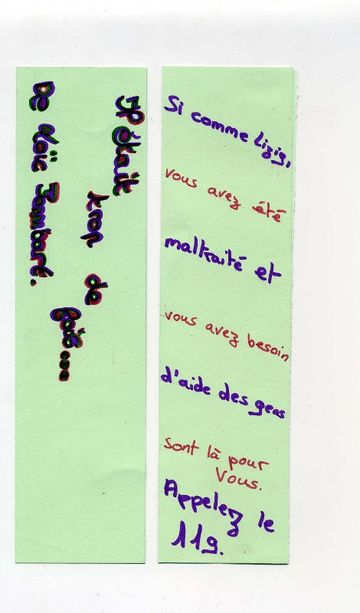 Il était
trop de
fois...
De Loïc Jombart.
Si comme Lizig,
vous avez été
maltraité et
vous avez besoin
d'aide des gens
sont là pour
Vous.
Appelez le
119.